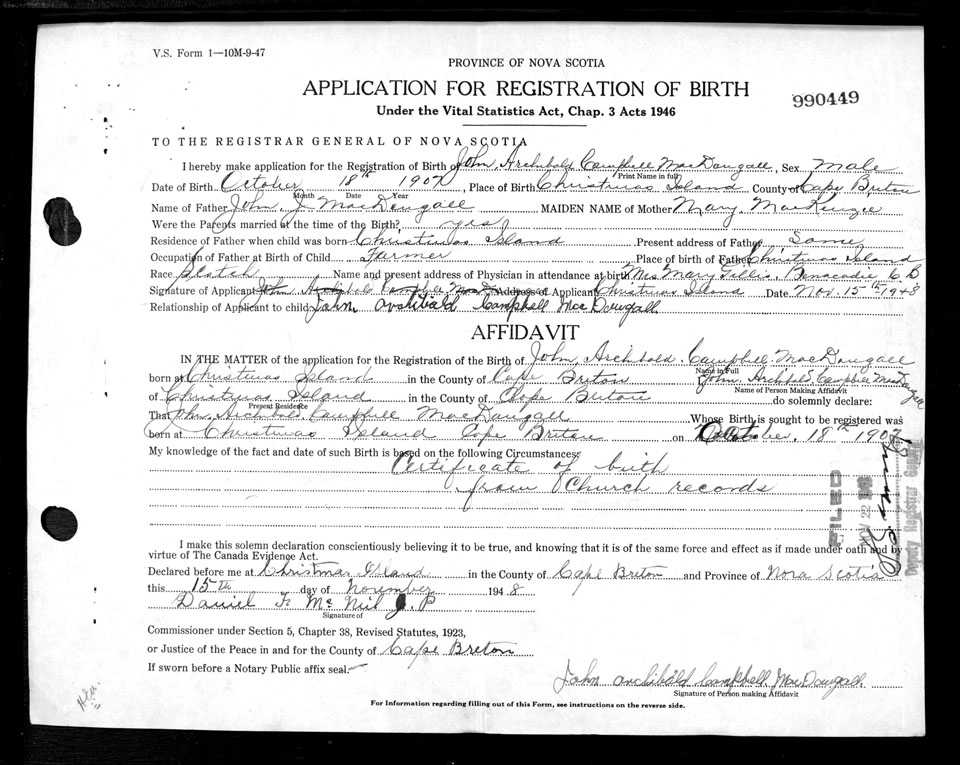 V.S. Form 1—10M-9-47
PROVINCE OF NOVA SCOTIA
APPLICATION FOR REGISTRATION OF BIRTH
990449
Under the Vital Statistics Act, Chap. 3 Acts 1946
TO THE REGISTRAR GENERAL OF NOVA SCOTIA
I hereby make application for the Registration of Birth of John Archibald Campbell MacDougall, Sex Male
Print Name in full
Date of Birth October 18th 1907, Place of Birth Christmas Island County of Cape Briton
Month Date Year
Name of Father John J MacDougall MAIDEN NAME of Mother Mary MacKenzie
Were the Parents married at the time of the Birth? yes
Residence of Father when child was born Christmas Island Present address of Father Same
Occupation of Father at Birth of Child Farmer Place of birth of Father Christmas Island
Race Scotch Name and present address of Physician in attendance at birth Mrs Mary Gillis Benacadie C B
Signature of Applicant John Archibald Campbell MacDougall Address of Applicant Christmas Island Date Nov. 15th 1948
Relationship of Applicant to child John Campbell MacDougall
AFFIDAVIT
IN THE MATTER of the application for the Registration of the Birth of John Archibald Campbell MacDougall
Name in Full
born at Christmas Island in the County of Cape Briton John Archibald Campbell MacDougall
Name of Person Making Affidavit
of Christmas Island in the County of Cape Briton do solemnly declare:
Present Residence
That John Archibald Campbell MacDougall Whose Birth is sought to be registered was
born at Christmas Island Cape Briton on October 18th 1907
My knowledge of the fact and date of such Birth is based on the following Circumstances
Certificate of birth
from Church records
FILED
NOV 22 1948
Deputy Registrar General
I make this solemn declaration conscientiously believing it to be true, and knowing that it is of the same force and effect as if made under oath and by
virtue of The Canada Evidence Act.
Declared before me at Christmas Island in the County of Cape Briton and Province of Nova Scotia
this 15th day of November 1948
Daniel F. McNeil J. P
Signature of
Commissioner under Section 5, Chapter 38, Revised Statutes, 1923,
or Justice of the Peace in and for the County of Cape Breton
If sworn before a Notary Public affix seal.
John archibald Campbell MacDougall
Signature of Person making Affidavit
For Information regarding filling out of this Form, see instructions on the reverse side.